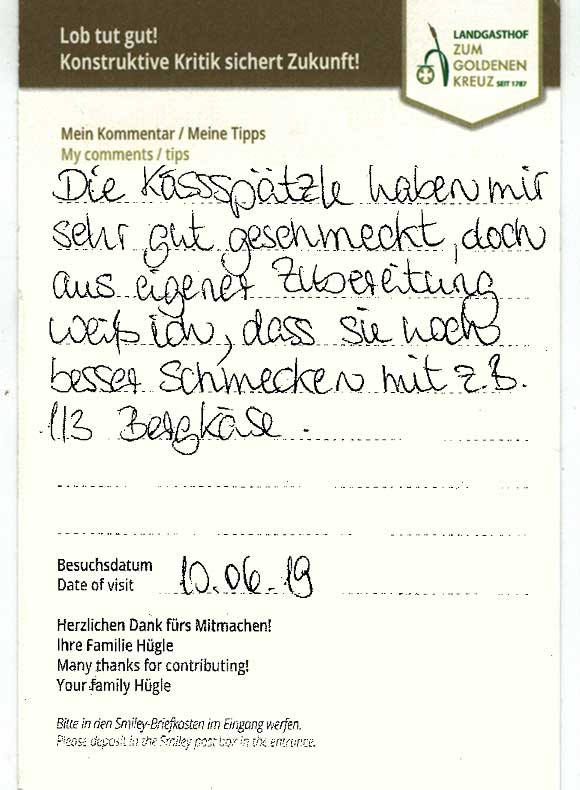 Lob tut gut!
Konstruktive Kritik sichert Zukunft!
LANDGASTHOF
ZUM
GOLDENEN
KREUZ SEIT 1787
Mein Kommentar / Meine Tipps
My comments / tips
Die Kässspätzle haben mir
sehr gut geschmeckt, doch
aus eigener Zubereitung
weiß ich, dass sie noch
besser schmecken mit z.B.
1/3 Bergkäse.
Besuchsdatum
Date of visit 10.06.19
Herzlichen Dank fürs Mitmachen!
Ihre Familie Hügle
Many thanks for contributing!
Your family Hügle
Bitte in den Smiley-Briefkasten im Eingang werfen.
Please deposit in the Smiley post box in the entrance.